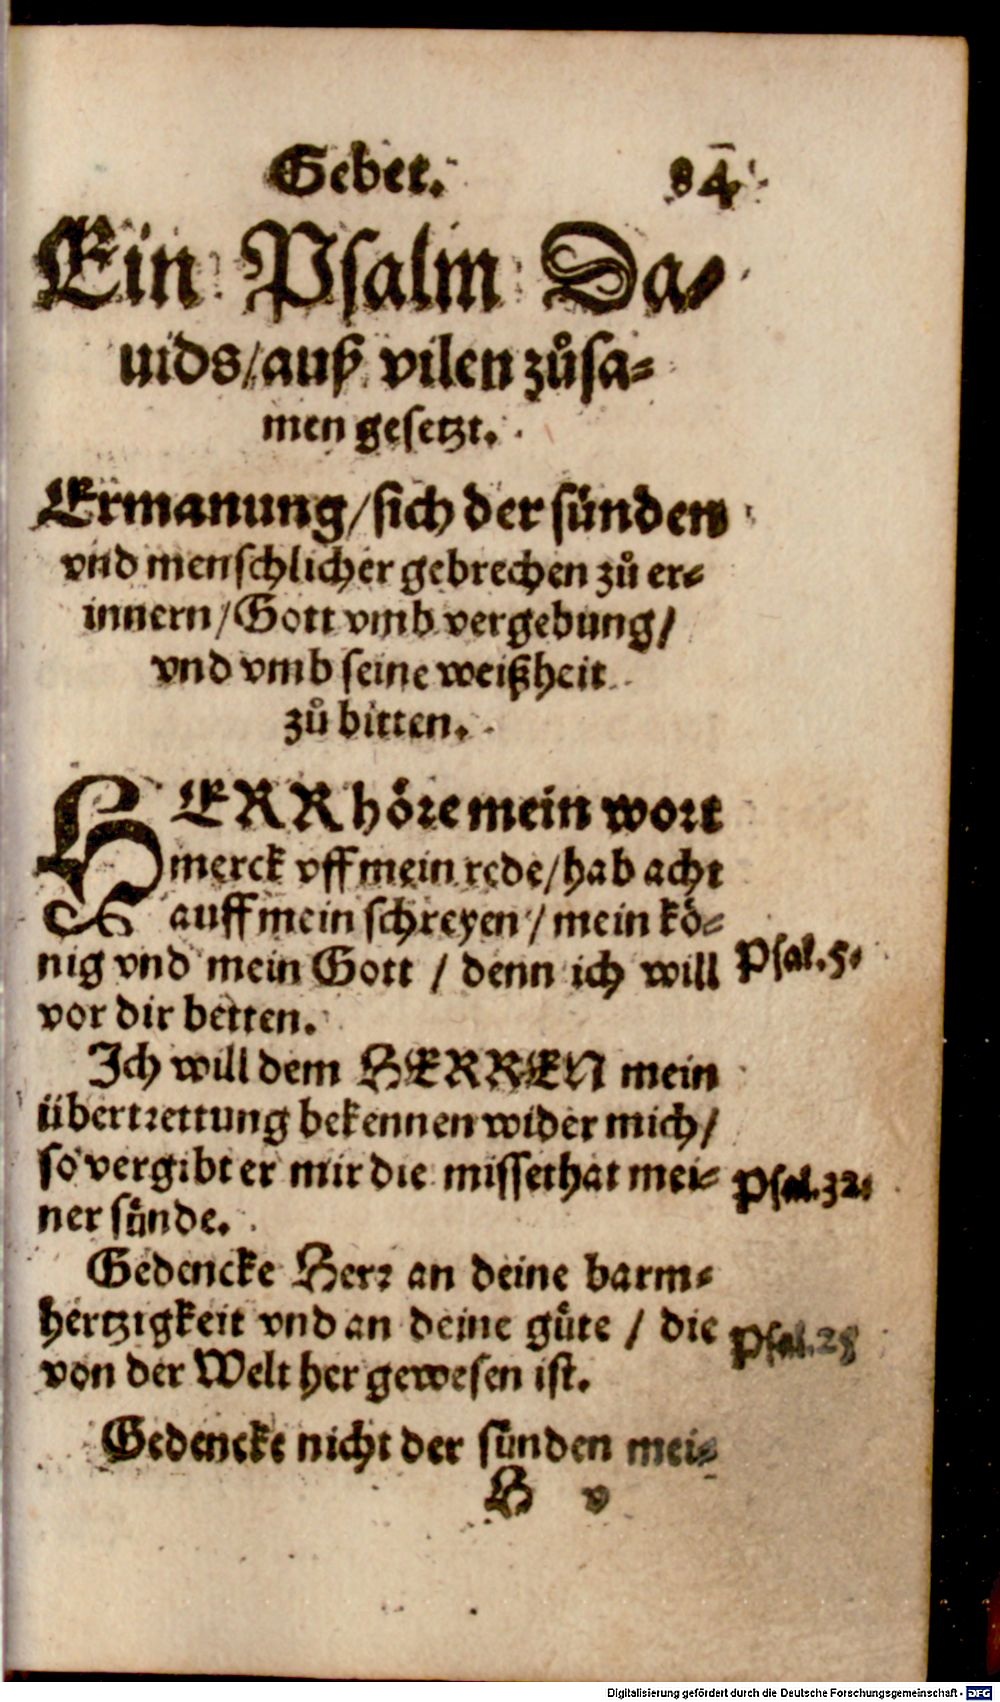 Gebet. 84
Ein Psalm Da⸗
uids/auß vilen zůsa⸗
men gesetzt.
Ermanung/sich der sünden
vnd menschlicher gebrechen zů er⸗
innern/Gott vmb vergebung/
vnd vmb seine weißheit
zů bitten.
HERR höre mein wort
merck vff mein rede/hab acht
auff mein schreyen/mein kö⸗
nig vnd mein Gott / denn ich will
Psal.5.
vor dir betten.
Ich will dem HERREN mein
übertrettung bekennen wider mich/
so vergibt er mir die missethat mei⸗
Psal.32.
ner sünde.
Gedencke Herr an deine barm⸗
hertzigkeit vnd an deine güte / die
Psal.25
von der Welt her gewesen ist.
Gedencke nicht der sünden mei⸗
H v
Digitalisierung gefördert durch die Deutsche Forschungsgemeinschaft - DFG